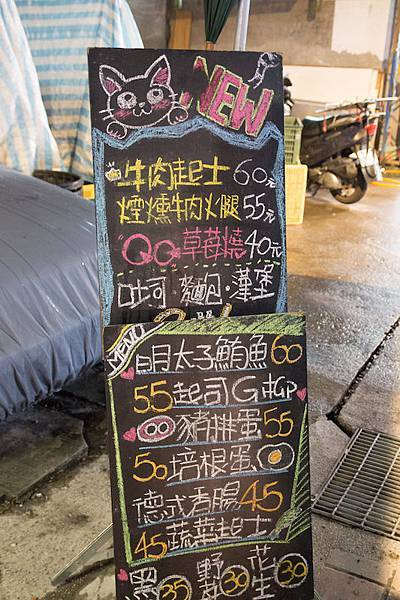 NEW
牛肉起士 60元
煙燻牛肉火腿 55元
QQ草莓燒 40元
吐司 麵包·漢堡
MENU
明太子鮪魚 60
55 起司
豬排蛋 55
50 培根蛋
德式香腸 45
45 蔬菜起士
35 30 花生 30